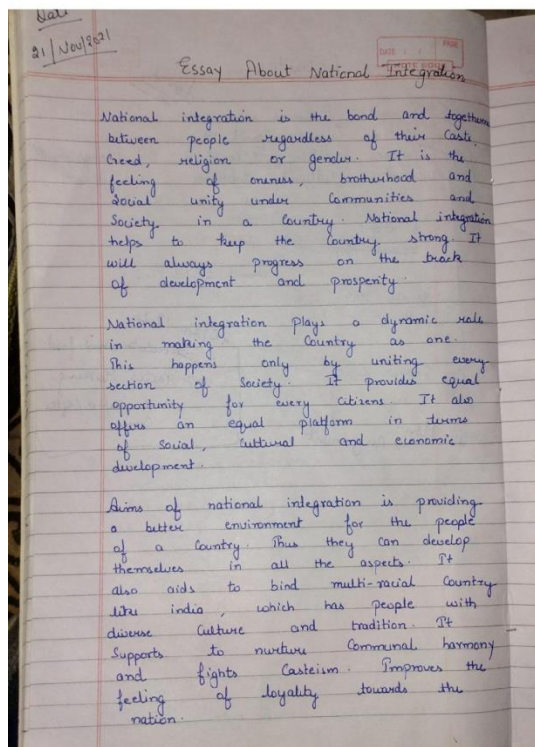 Date
21/Nov/2021
DATE
PAGE
Essay About National Integration
National integration is the bond and togetherne
between people regardless of their Caste,
Creed, religion or gender. It is the
feeling of oneness, brotherhood and
Social unity under Communities and
Society in a Country. National integration
helps to keep the Country strong. It
will always progress on the track
of development and prosperity.
National integration plays a dynamic role
in making the Country as one.
This happens only by uniting every
section of Society. It provides equal
opportunity for every citizens. It also
offers an equal platform in terms
of Social, Cultural and economic
development.
Aims of national integration is providing
a better environment for the people
of a Country. Thus they can develop
themselves in all the aspects. It
also aids to bind multi-racial Country
like india, which has people with
diverse Culture and tradition. It
Supports to nurture Communal harmony
and fights Casteism. Improves the
feeling of loyality towards the
nation.